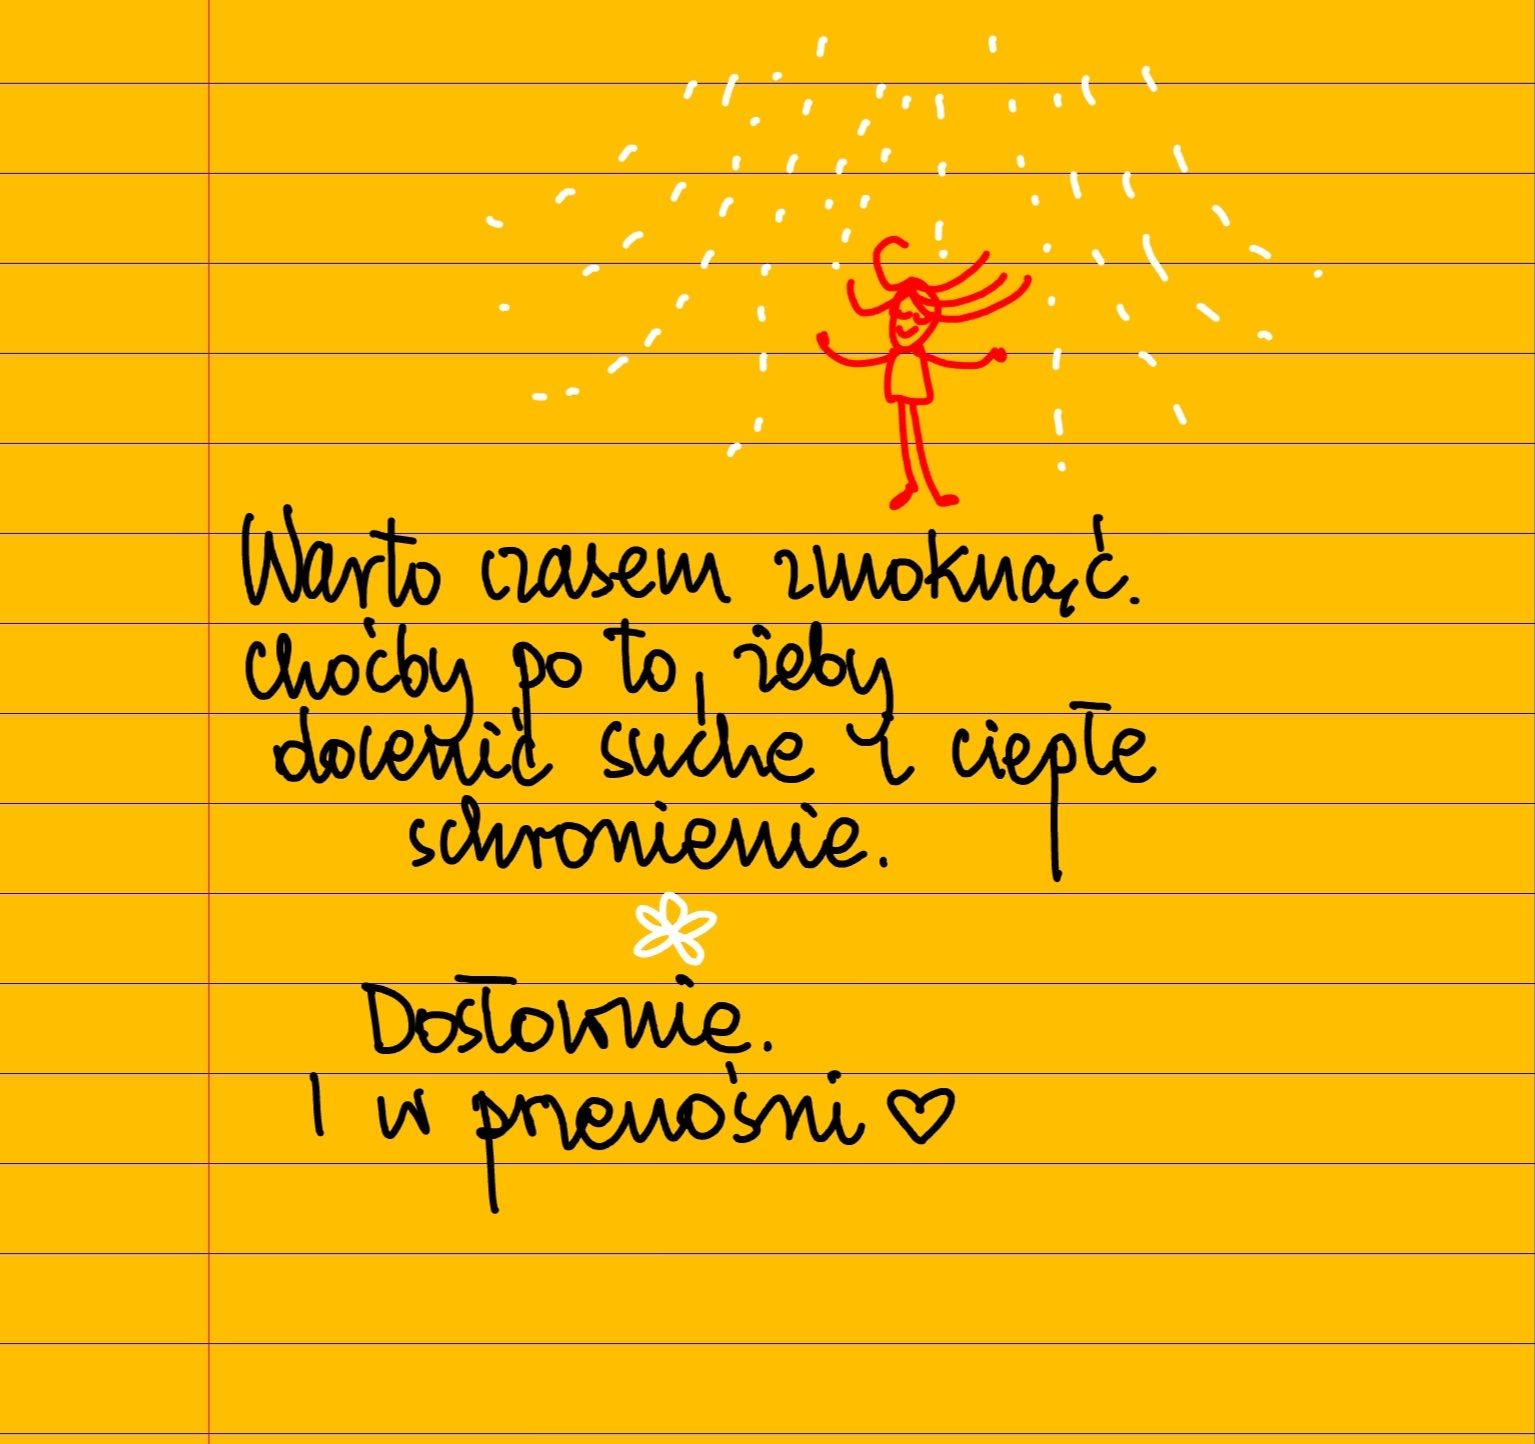 Warto czasem zmoknąć.
choćby po to, żeby
docenić suche i ciepłe
schronienie.
Dosłownie.
I w przenośni ♡